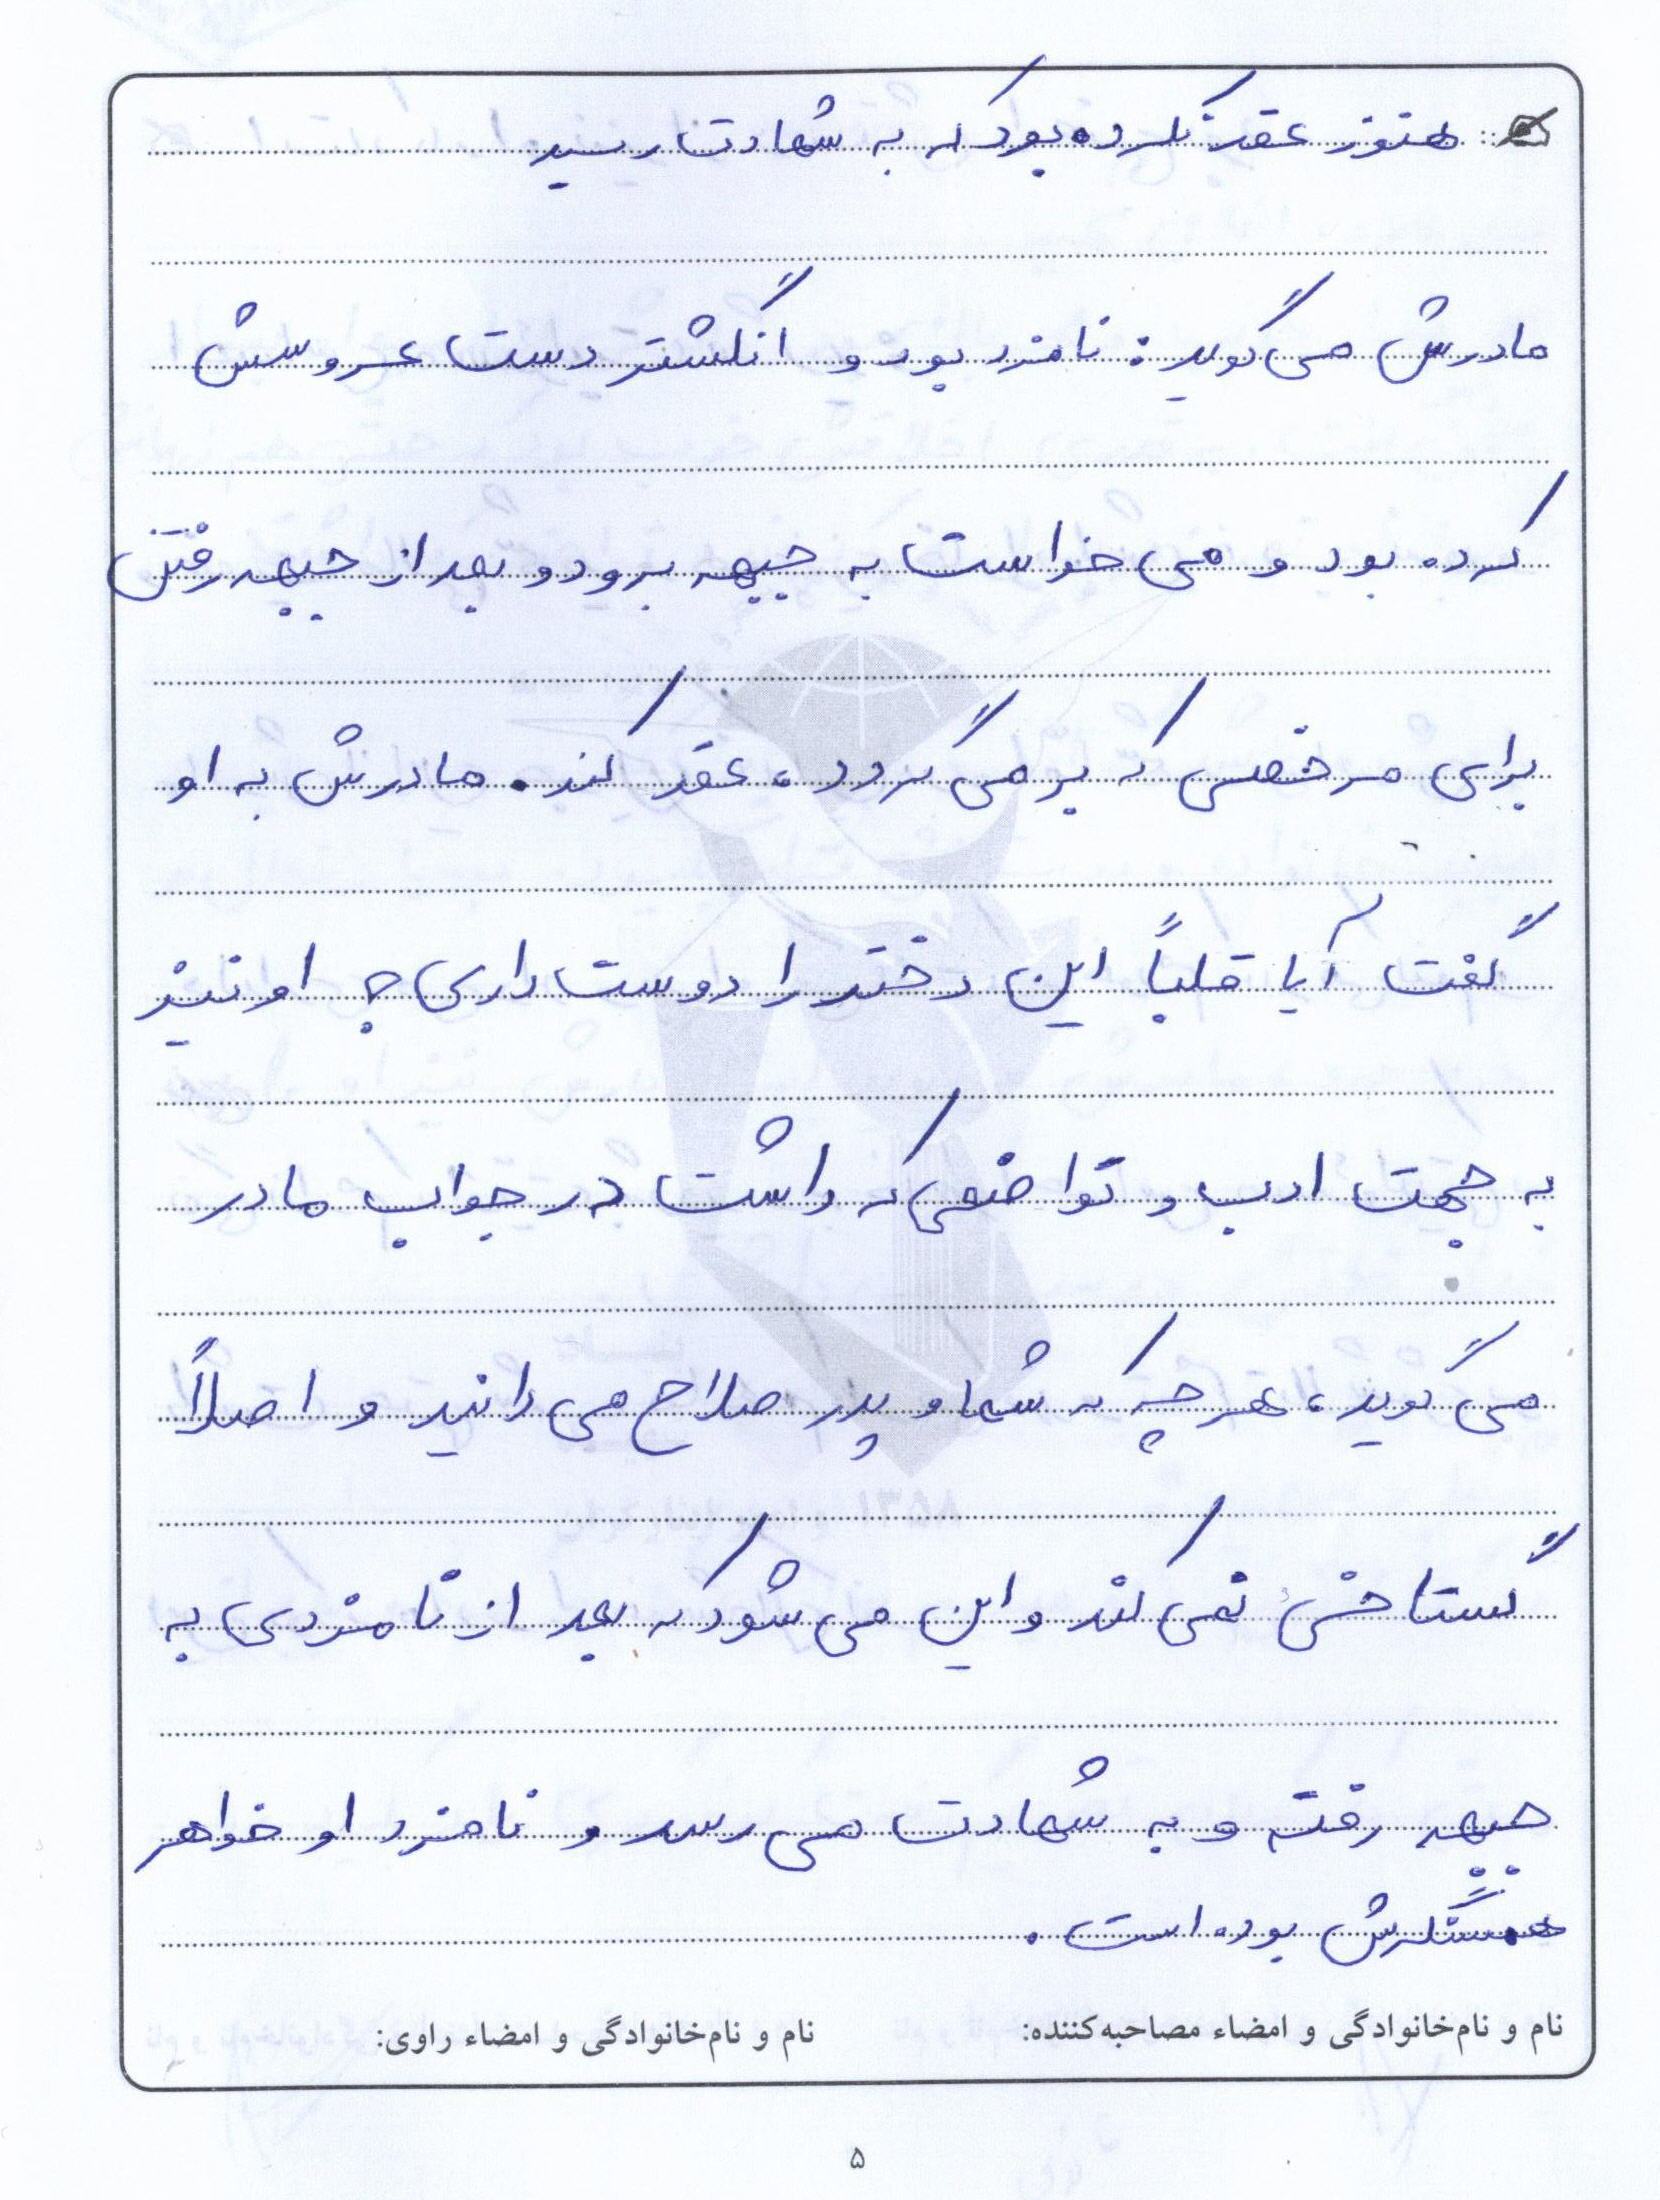 هنوز عقد نکرده بود که به شهادت رسید
مادرش می‌گوید: نامزد بود و انگشتر دست عروسش
کرده بود و می‌خواست به جبهه برود و بعد از جبهه رفتن
برای مرخصی که برمی‌گردد، عقد کند. مادرش به او
گفت آیا قلباً این دختر را دوست داری؟ او نیز
به جهت ادب و تواضعی که داشت در جواب مادر
می‌گوید، هر چه که شما و پدر صلاح می‌دانید و اصلاً
گستاخی نمی‌کند و این می‌شود که بعد از نامزدی به
جبهه رفته و به شهادت می‌رسد و نامزد او خواهر
همسنگرش بوده است.
نام و نام‌خانوادگی و امضاء مصاحبه‌کننده: نام و نام‌خانوادگی و امضاء راوی:
۵